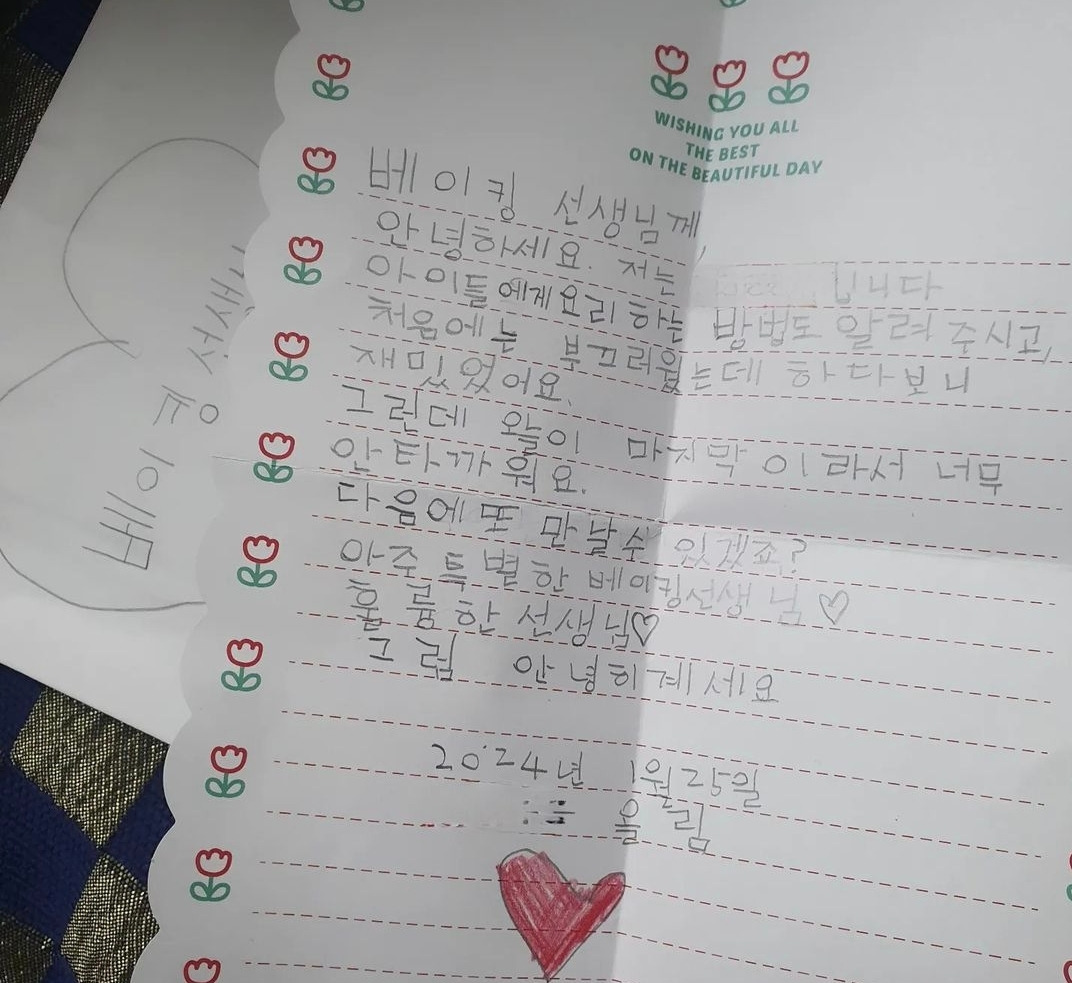 WISHING YOU ALL
THE BEST
ON THE BEAUTIFUL DAY
베이킹 선생님께,
안녕하세요. 저는 입니다
아이들에게 요리하는 방법도 알려주시고,
처음에는 부끄러웠는데 하다보니
재미있었어요.
그런데 오늘이 마지막이라서 너무
안타까워요.
다음에 또 만날수 있겠죠?
아주 특별한 베이킹선생님♡
훌륭한 선생님♡
그럼 안녕히계세요
2024년 1월25일
올림